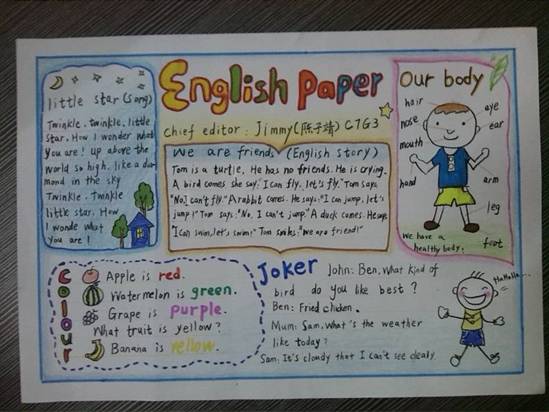 English Paper
Chief editor: Jimmy(陈子靖) C7G3
little star (song)
Twinkle. twinkle. little
star. How I wonder what
you are! up above the
world so high. like a dia-
mond in the sky
Twinkle. Twinkle
little star. How
I wonde what
you are!
We are friends (English story)
Tom is a turtle. He has no friends. He is crying.
A bird comes she say: "I can fly, let's fly." Tom says:
"No, I can't fly." A rabbit comes. He says: "I can jump, let's
jump!" Tom says: "No, I can't jump." A duck comes. He says:
"I can swim, let's swim!" Tom smiles: "We are friend!"
Our body
hair
nose
mouth
hand
aye
ear
arm
leg
foot
We have a
healthy body.
Colour
Apple is red.
Watermelon is green.
Grape is purple.
What fruit is yellow?
Banana is yellow.
Joker
John: Ben, What kind of
bird do you like best?
Ben: Fried chicken.
Mum: Sam, What's the weather
like today?
Sam: It's cloudy that I can't see clealy.
HaHaHa...